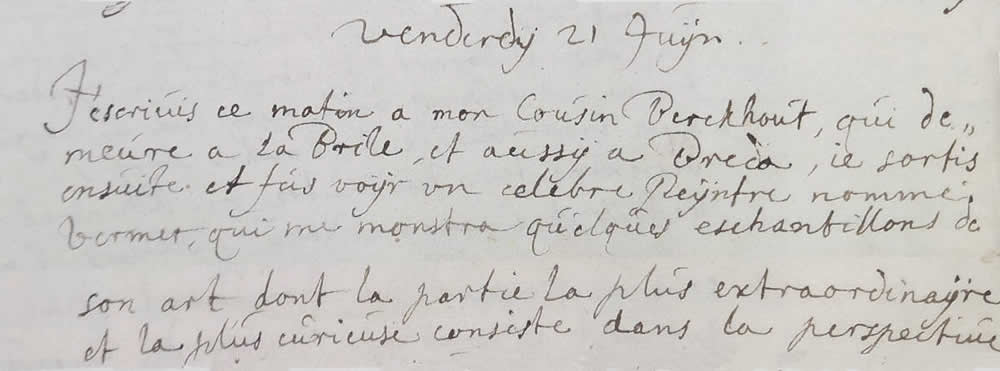 Venderdy 21 Juijn.
J'escriuis ce matin a mon Cousin Berckhout, qui de„
meure a la Brile, et aussy a Breda, ie sortis
ensuite et fus voijr un celebre Peijntre nommé
Vermer, qui me monstra quelques eschantillons de
son art dont la partie la plus extraordinaijre
et la plus curieuse consiste dans la perspective